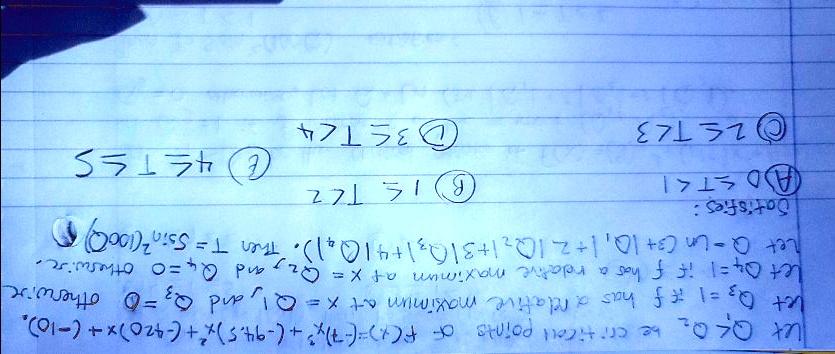 Let Q₁<Q₂ be critical points of f(x)=(-7)x³+(-94.5)x²+(-420)x+(-10).
Let Q₃=1 if f has a relative maximum at x = Q₁, and Q₃=0 otherwise
Let Q₄=1 if f has a relative maximum at x = Q₂, and Q₄=0 otherwise.
Let Q=ln(3+|Q₁|+2|Q₂|+3|Q₃|+4|Q₄|). Then T=5sin²(100Q)
Satisfies:
(A) 0≤T<1 (B) 1≤T<2
(C) 2≤T<3 (D) 3≤T<4 (E) 4≤T≤5